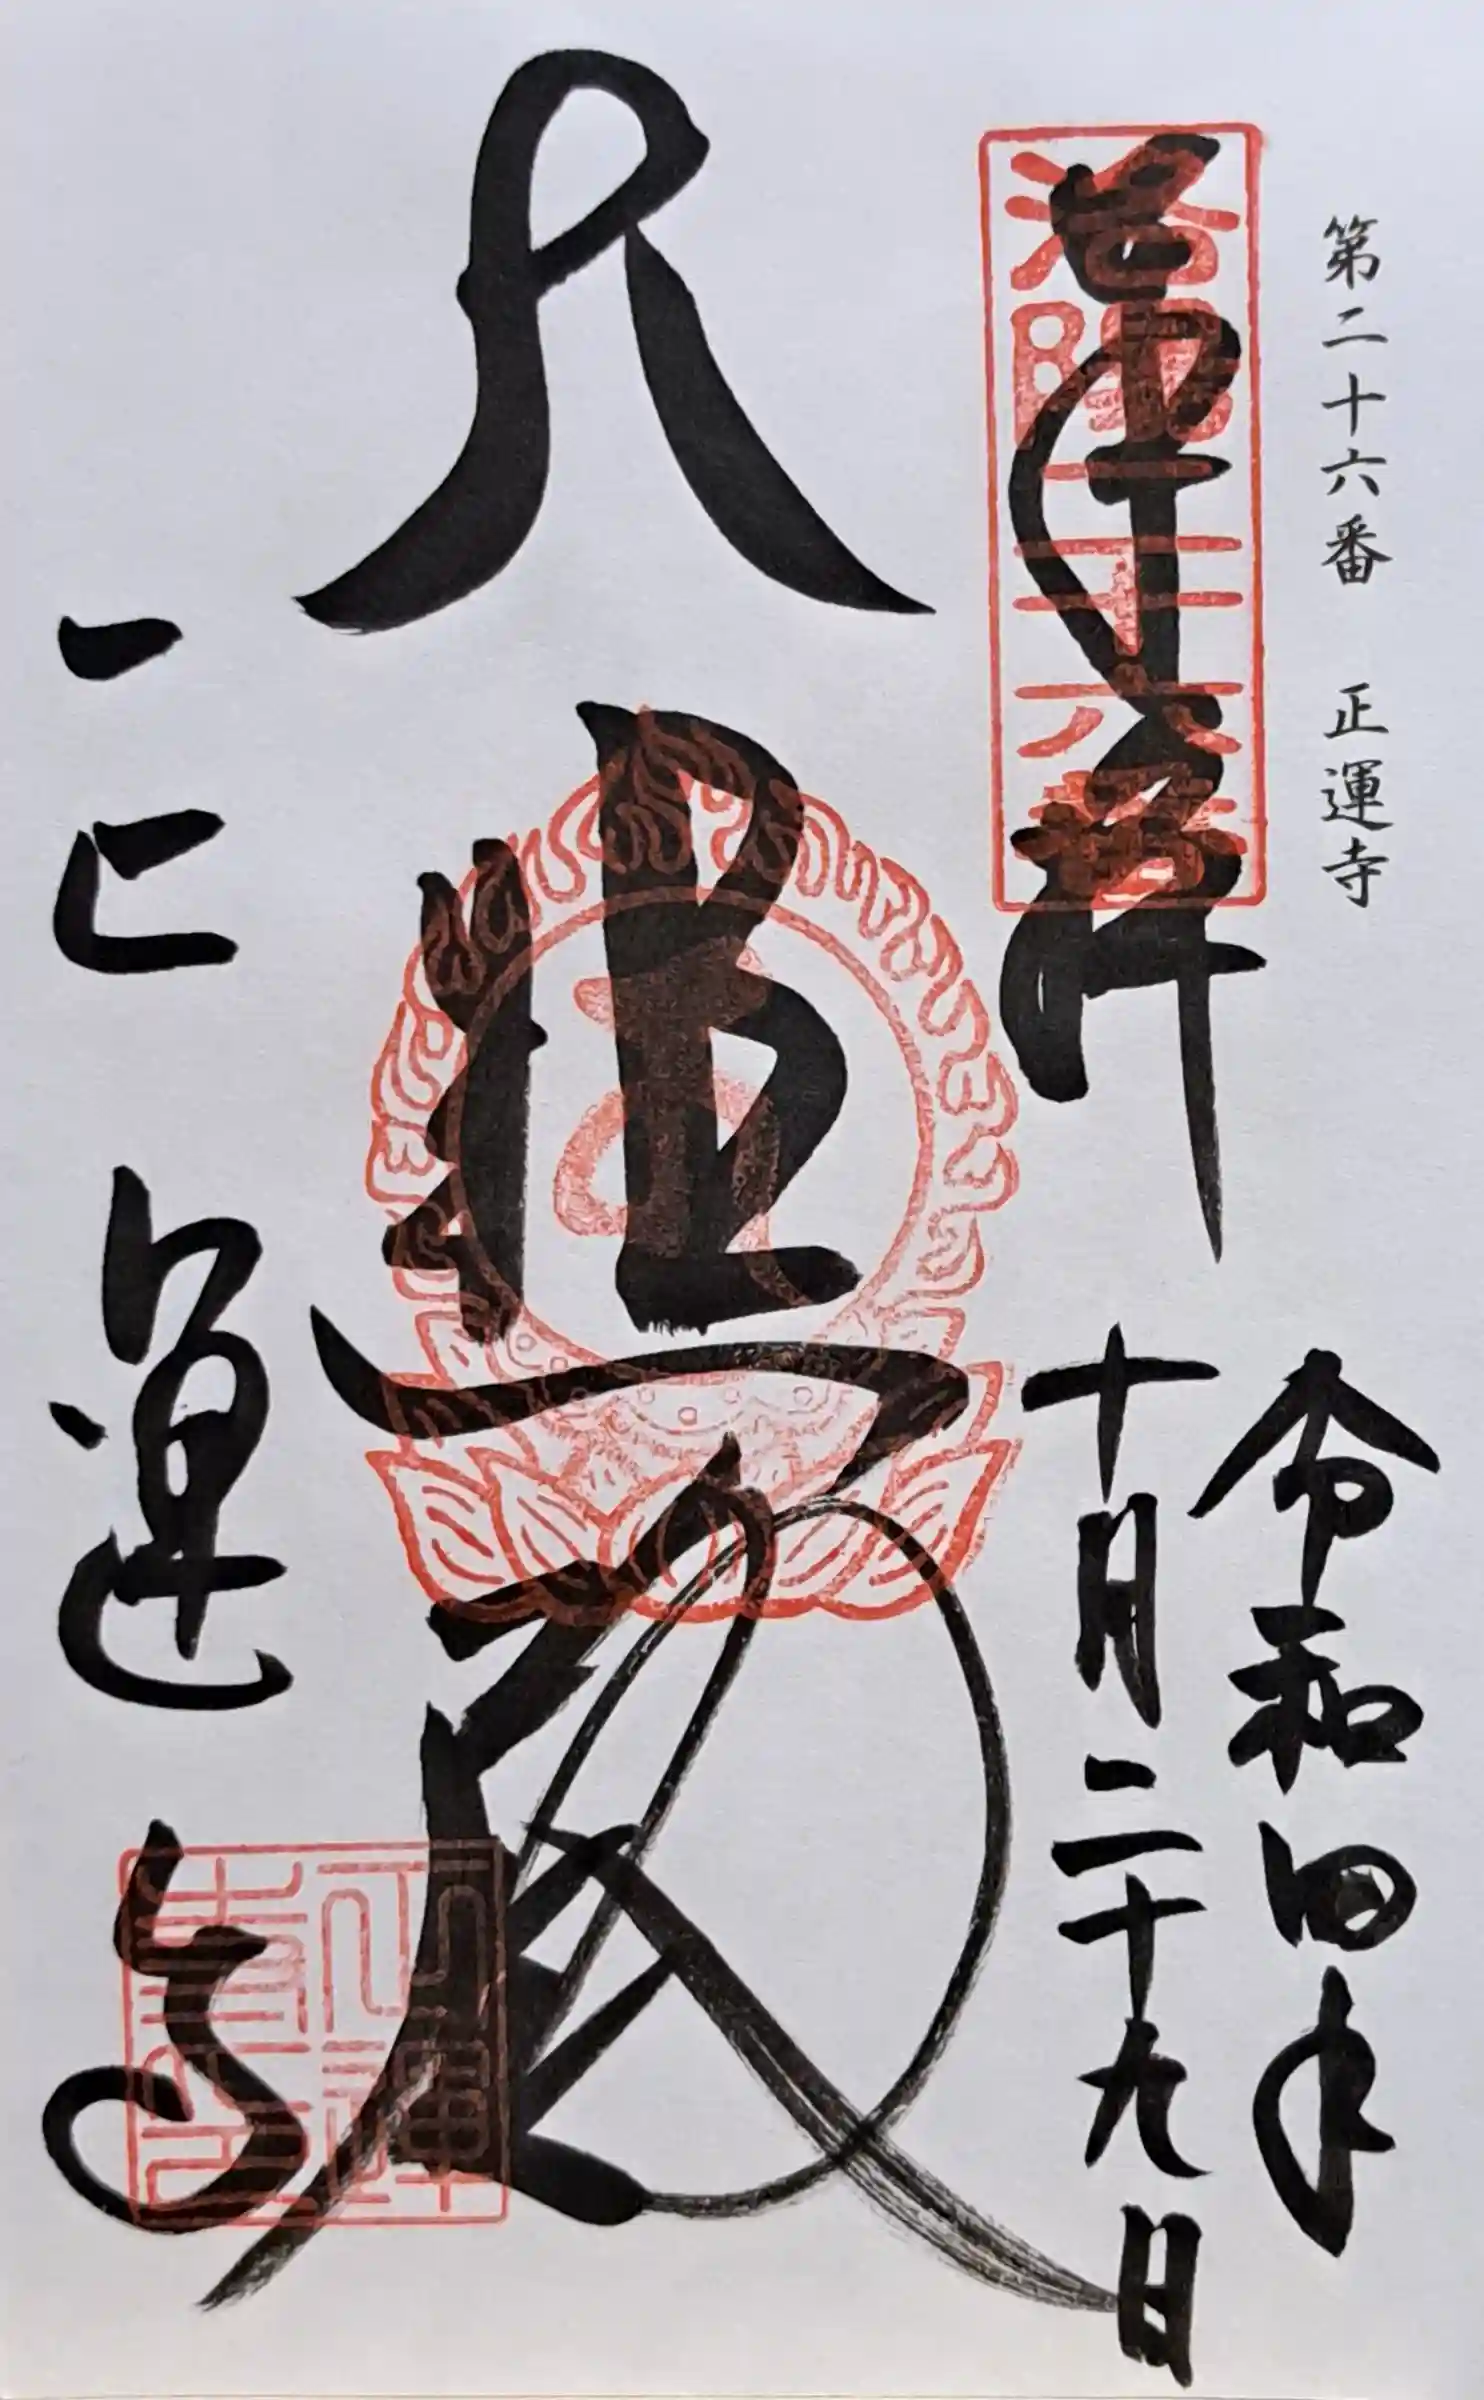 第二十六番 正運寺
洛陽二十六番
奉拝
令和四年
十月二十九日
大悲殿
正運寺